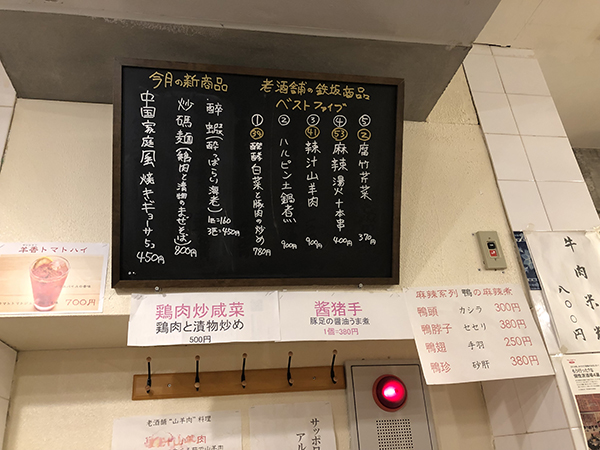 老酒舗の鉄板商品
ベストファイブ
⑤ ② 腐竹芹菜 370
④ 53 麻辣湯火十本串 400
③ 41 辣汁山羊肉 900
② ハルピン土鍋煮 900
① 39 醗酵白菜と豚肉の炒め 780
今月の新商品
酔蝦(酔っぱらい海老) 1匹=160 3匹=450円
炒碼麺(鶏肉と漬物のまぜそば) 800円
中国家庭風焼きギョーサ5コ 450円
羊香トマトハイ
700円
鶏肉炒咸菜
鶏肉と漬物炒め
500円
酱猪手
豚足の醤油うま煮
1個=380円
麻辣系列 鴨の麻辣煮
鴨頭 カシラ 300円
鴨脖子 セセリ 380円
鴨翅 手羽 250円
鴨珍 砂肝 380円
牛肉米
八〇〇
老酒舗"山羊肉"料理
サッポロ
アル